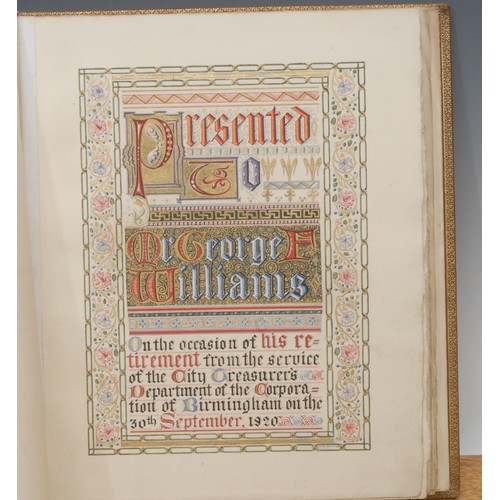 Presented
To
Mr George F
Williams
On the occasion of his re-
tirement from the service
of the City Treasurer's
Department of the Corpora-
tion of Birmingham on the
30th September, 1920